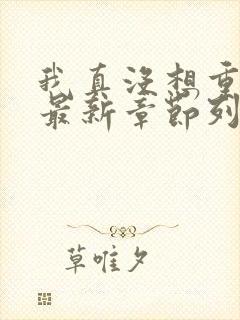 我真没想重
最新章节列
草唯夕